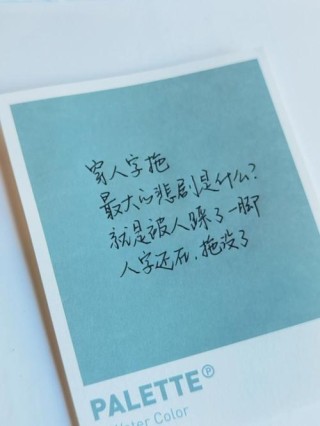 穷人字拖
最大的悲剧是什么?
就是被人踩了一脚
人字还在,拖没了
PALETTE®
Water Color